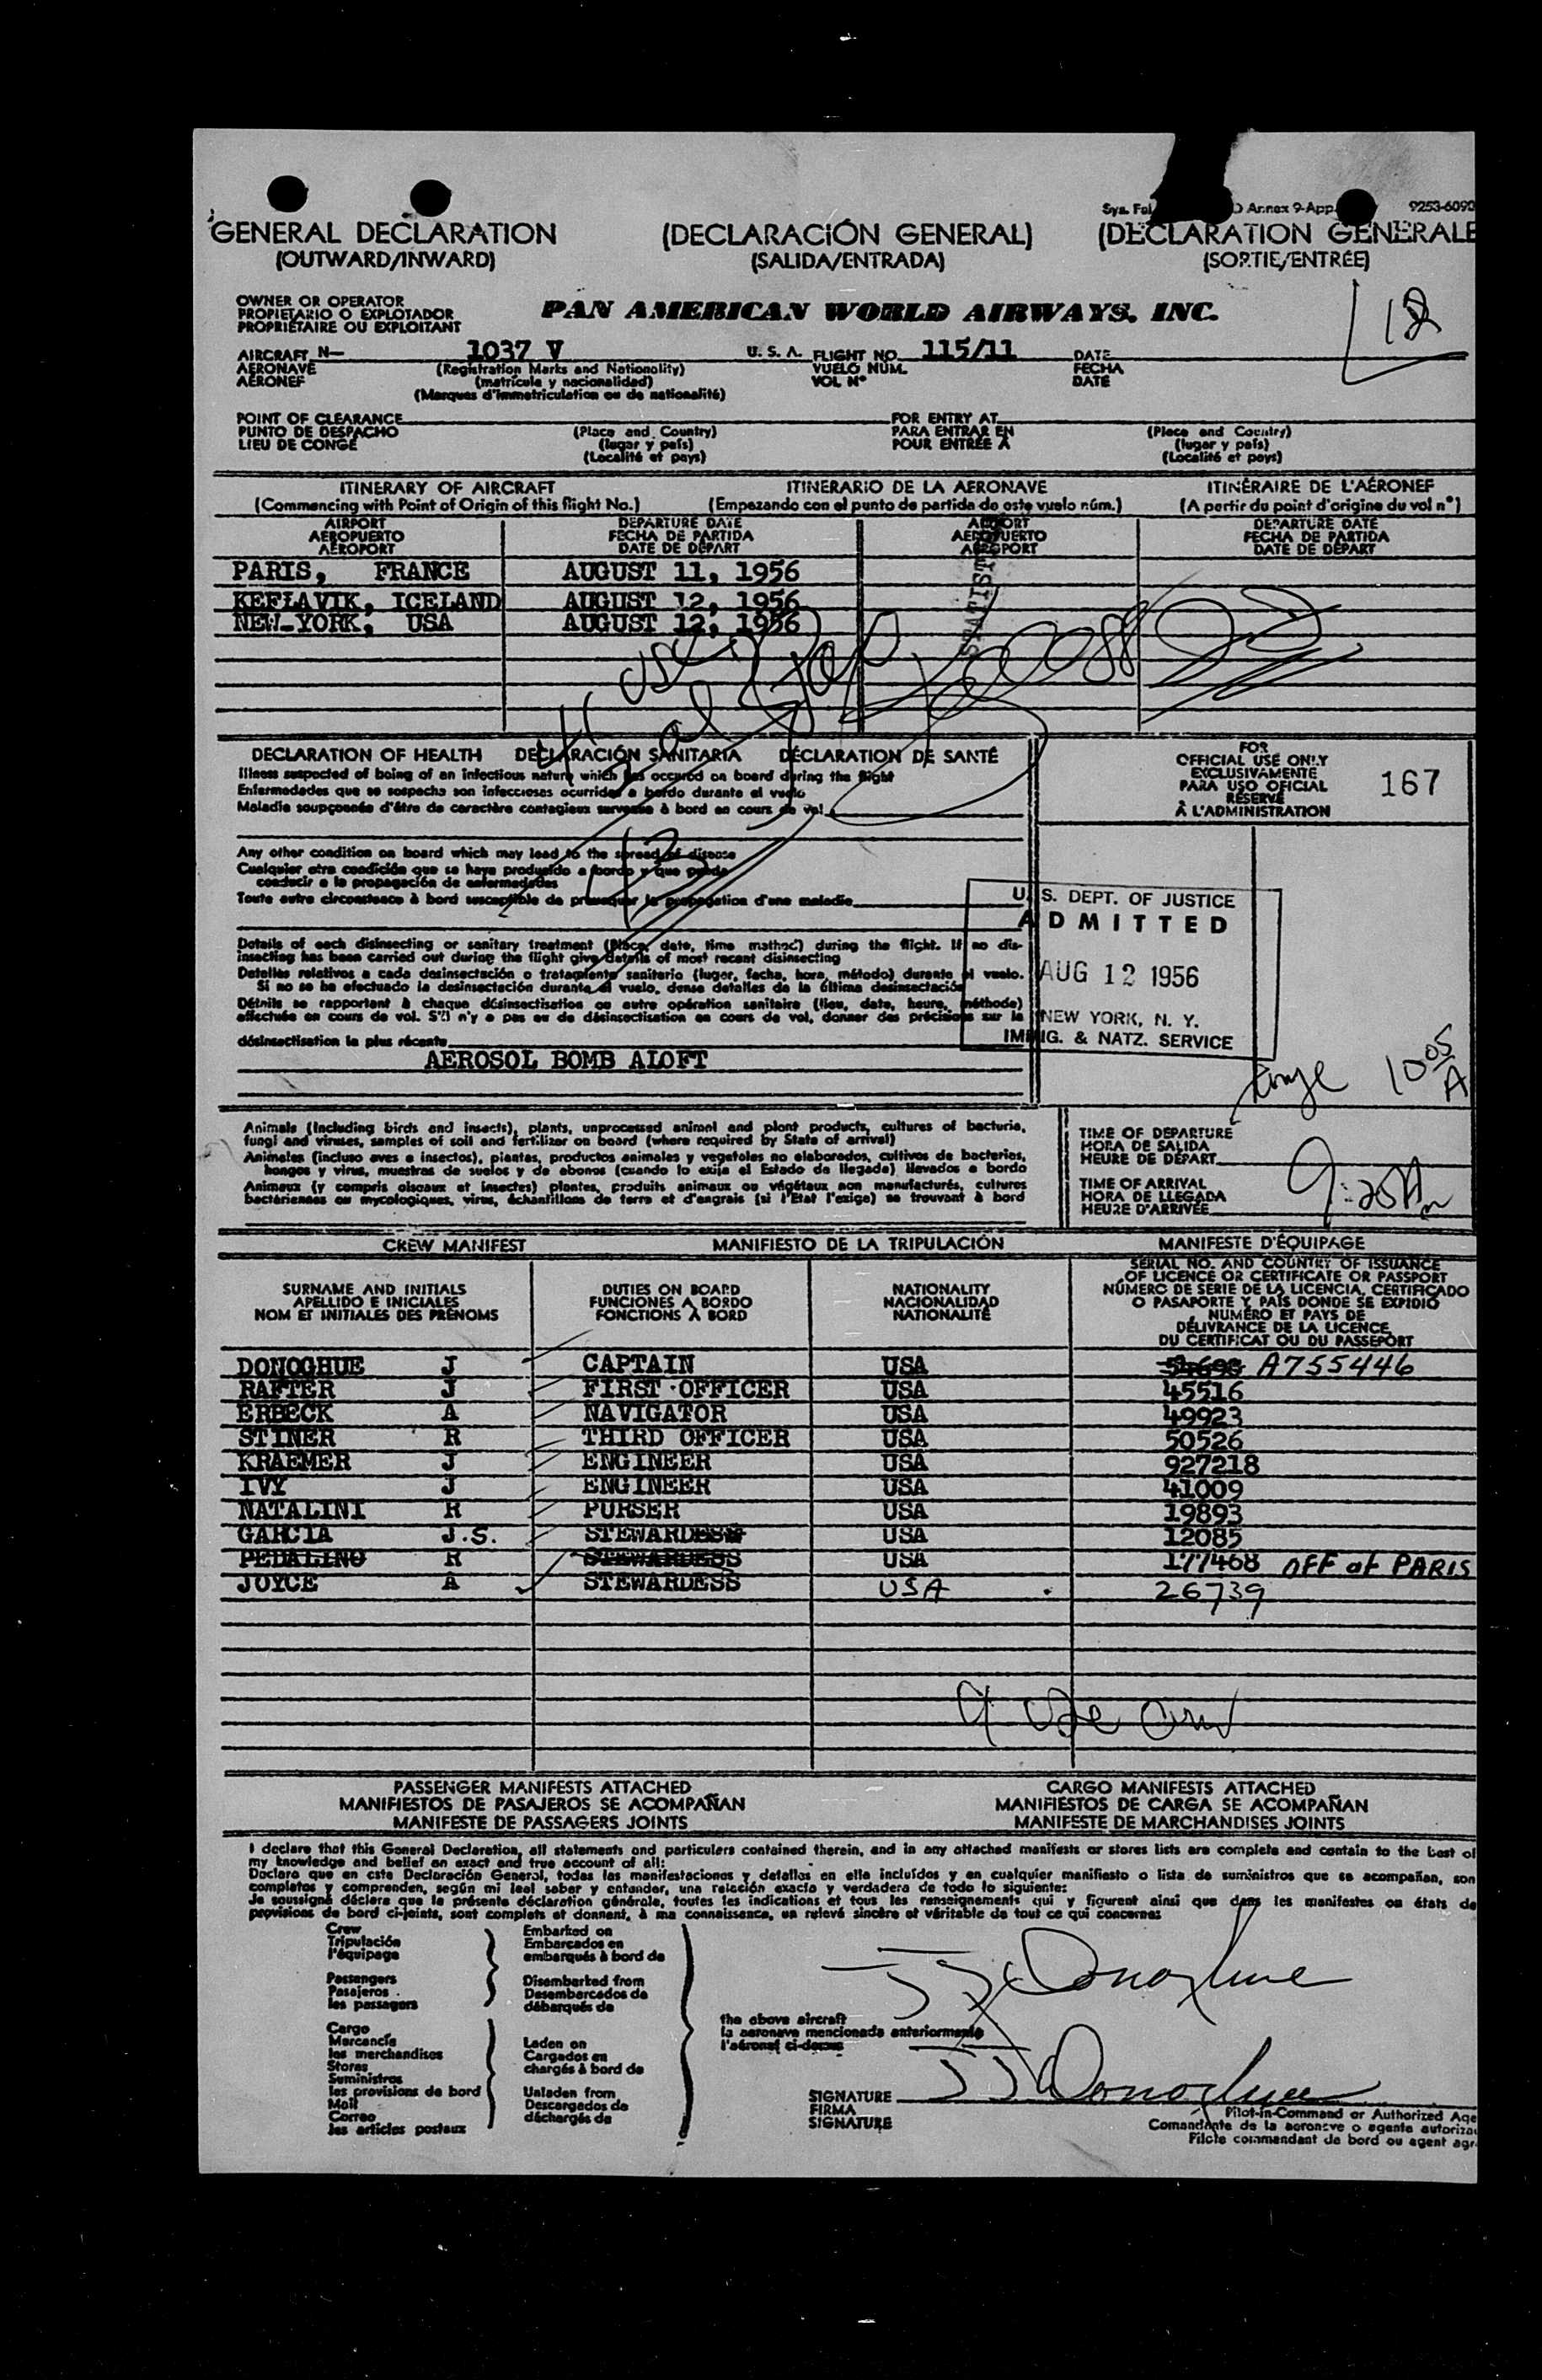 Annex 9-App. 9253-6090
GENERAL DECLARATION (DECLARACIÓN GENERAL) (DECLARATION GENERALE
(OUTWARD/INWARD) (SALIDA/ENTRADA) (SORTIE/ENTRÉE)
OWNER OR OPERATOR
PROPIETARIO O EXPLOTADOR
PROPRIÉTAIRE OU EXPLOITANT
PAN AMERICAN WORLD AIRWAYS, INC.
12
AIRCRAFT N— 1037 V U. S. A. FLIGHT NO. 115/11 DATE
AERONAVE (Registration Marks and Nationality) VUELO NÚM. FECHA
AÉRONEF (matrícula y nacionalidad) VOL Nº DATE
(Marques d'immatriculation ou de nationalité)
POINT OF CLEARANCE FOR ENTRY AT
PUNTO DE DESPACHO (Place and Country) PARA ENTRAR EN (Place and Country)
LIEU DE CONGÉ (lugar y país) POUR ENTRÉE À (lugar y país)
(Localité et pays) (Localité et pays)
ITINERARY OF AIRCRAFT ITINERARIO DE LA AERONAVE ITINÉRAIRE DE L'AÉRONEF
(Commencing with Point of Origin of this flight No.) (Empezando con el punto de partida de este vuelo núm.) (A partir du point d'origine du vol nº)
AIRPORT DEPARTURE DATE AIRPORT DEPARTURE DATE
AEROPUERTO FECHA DE PARTIDA AEROPUERTO FECHA DE PARTIDA
AÉROPORT DATE DE DÉPART AÉROPORT DATE DE DÉPART
PARIS, FRANCE AUGUST 11, 1956
KEFLAVIK, ICELAND AUGUST 12, 1956
NEW-YORK, USA AUGUST 12, 1956
DECLARATION OF HEALTH DECLARACIÓN SANITARIA DÉCLARATION DE SANTÉ
Illness suspected of being of an infectious nature which has occured on board during the flight
Enfermedades que se sospecha son infecciosas ocurridas a bordo durante el vuelo
Maladie soupçonnée d'être de caractère contagieux survenue à bord en cours de vol
FOR
OFFICIAL USE ONLY
EXCLUSIVAMENTE
PARA USO OFICIAL
RÉSERVÉ
À L'ADMINISTRATION
167
Any other condition on board which may lead to the spread of disease
Cualquier otra condición que se haya producido a bordo y que pueda
conducir a la propagación de enfermedades
Toute autre circonstance à bord susceptible de provoquer la propagation d'une maladie
U. S. DEPT. OF JUSTICE
ADMITTED
AUG 12 1956
NEW YORK, N. Y.
IMMIG. & NATZ. SERVICE
Details of each disinsecting or sanitary treatment (place, date, time method) during the flight. If no dis-
insecting has been carried out during the flight give details of most recent disinsecting
Detalles relativos a cada desinsectación o tratamiento sanitario (lugar, fecha, hora, método) durante el vuelo.
Si no se ha efectuado la desinsectación durante el vuelo, dense detalles de la última desinsectación
Détails se rapportant à chaque désinsectisation ou autre opération sanitaire (lieu, date, heure, méthode)
effectuée en cours de vol. S'il n'y a pas eu de désinsectisation en cours de vol, donner des précisions sur la
désinsectisation la plus récente
AEROSOL BOMB ALOFT
10 05 A
Animals (Including birds and insects), plants, unprocessed animal and plant products, cultures of bacteria,
fungi and viruses, samples of soil and fertilizer on board (where required by State of arrival)
Animales (incluso aves e insectos), plantas, productos animales y vegetales no elaborados, cultivos de bacterias,
hongos y virus, muestras de suelos y de abonos (cuando lo exija el Estado de llegada) llevados a bordo
Animaux (y compris oiseaux et insectes) plantes, produits animaux ou végétaux non manufacturés, cultures
bactériennes ou mycologiques, virus, échantillons de terre et d'engrais (si l'Etat l'exige) se trouvant à bord
TIME OF DEPARTURE
HORA DE SALIDA
HEURE DE DÉPART
TIME OF ARRIVAL
HORA DE LLEGADA
HEURE D'ARRIVÉE
9:20 Am
CREW MANIFEST MANIFIESTO DE LA TRIPULACIÓN MANIFESTE D'ÉQUIPAGE
SURNAME AND INITIALS
APELLIDO E INICIALES
NOM ET INITIALES DES PRÉNOMS
DUTIES ON BOARD
FUNCIONES A BORDO
FONCTIONS À BORD
NATIONALITY
NACIONALIDAD
NATIONALITÉ
SERIAL NO. AND COUNTRY OF ISSUANCE
OF LICENCE OR CERTIFICATE OR PASSPORT
NÚMERO DE SERIE DE LA LICENCIA, CERTIFICADO
O PASAPORTE Y PAÍS DONDE SE EXPIDIÓ
NUMÉRO ET PAYS DE
DÉLIVRANCE DE LA LICENCE
DU CERTIFICAT OU DU PASSEPORT
DONOGHUE J CAPTAIN USA A755446
RAFTER J FIRST OFFICER USA 45516
ERBECK A NAVIGATOR USA 49923
STINER R THIRD OFFICER USA 50526
KRAEMER J ENGINEER USA 927218
IVY J ENGINEER USA 41009
NATALINI R PURSER USA 19893
GARCIA J.S. STEWARD USA 12085
PEDALINO R STEWARDESS USA 177468 OFF at PARIS
JOYCE A STEWARDESS USA 26739
9 use crw
PASSENGER MANIFESTS ATTACHED CARGO MANIFESTS ATTACHED
MANIFIESTOS DE PASAJEROS SE ACOMPAÑAN MANIFIESTOS DE CARGA SE ACOMPAÑAN
MANIFESTE DE PASSAGERS JOINTS MANIFESTE DE MARCHANDISES JOINTS
I declare that this General Declaration, all statements and particulers contained therein, and in any attached manifests or stores lists are complete and contain to the best of
my knowledge and belief an exact and true account of all:
Declaro que en esta Declaración General, todas las manifestaciones y detalles en ella incluídos y en cualquier manifiesto o lista de suministros que se acompañan, son
completos y comprenden, según mi leal saber y entender, una relación exacta y verdadera de todo lo siguiente:
Je soussigné déclare que la présente déclaration générale, toutes les indications et tous les renseignements qui y figurent ainsi que dans les manifestes ou états de
provisions de bord ci-joints, sont complets et donnent, à ma connaissance, un relevé sincère et véritable de tout ce qui concerne:
Crew
Tripulación
l'équipage
Passengers
Pasajeros
les passagers
Cargo
Mercancía
les merchandises
Stores
Suministros
les provisions de bord
Mail
Correo
les articles postaux
Embarked on
Embarcados en
embarqués à bord de
Disembarked from
Desembarcados de
débarqués de
Laden on
Cargados en
chargés à bord de
Unladen from
Descargados de
déchargés de
the above aircraft
la aeronave mencionada anteriormente
l'aéronef ci-dessus
JJ Donoghue
SIGNATURE JJ Donoghue
FIRMA
SIGNATURE
Pilot-in-Command or Authorized Age
Comandante de la aeronave o agente autoriza
Pilote commandant de bord ou agent agr